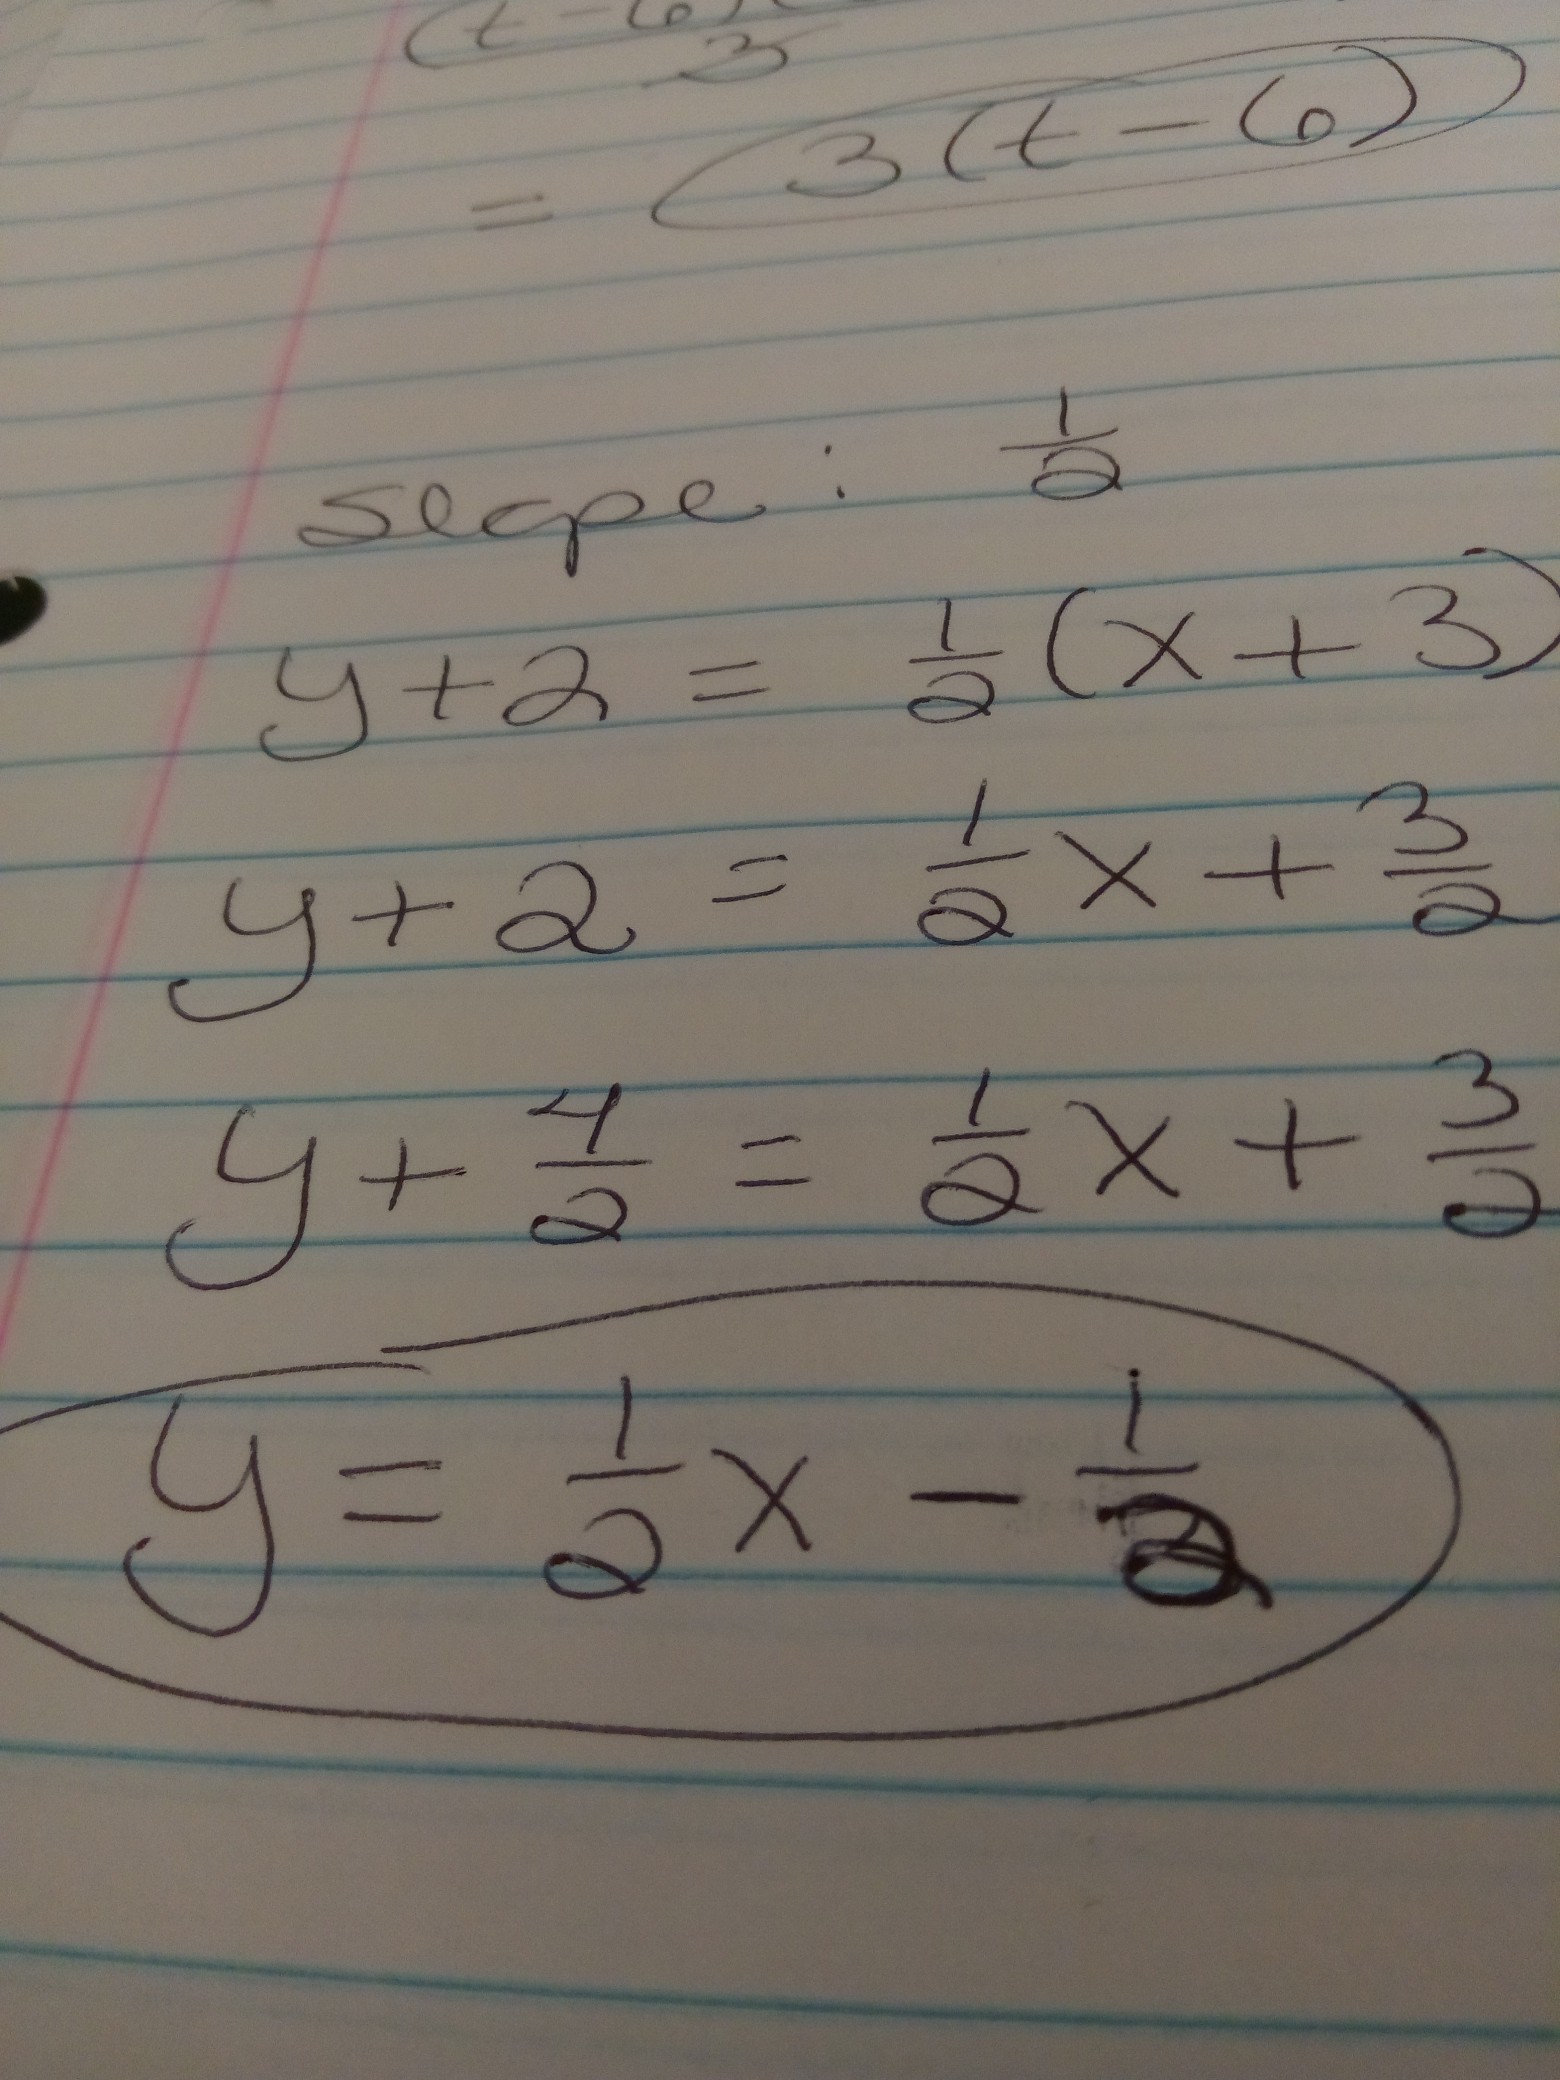 (t-6)
3
= 3(t-6)
slope: 1/2
y+2 = 1/2(x+3)
y+2 = 1/2x + 3/2
y + 4/2 = 1/2x + 3/2
y = 1/2x - 1/2